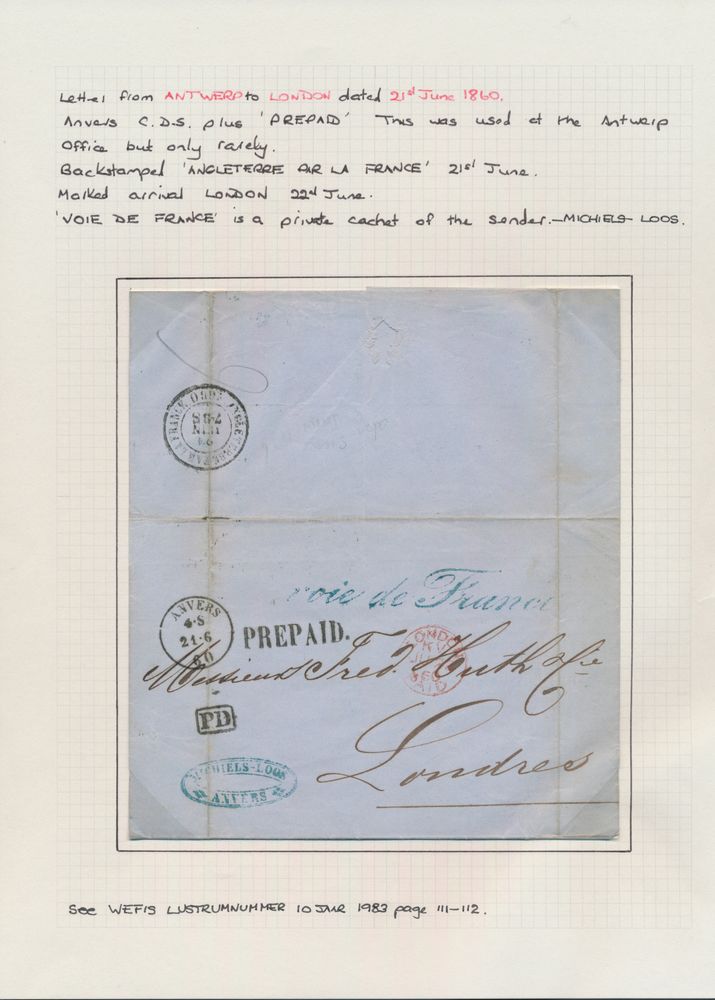 Letter from ANTWERP to LONDON dated 21st June 1860.
Anvers C.D.S. plus 'PREPAID' This was used at the Antwerp
Office but only rarely.
Backstamped 'ANGLETERRE PAR LA FRANCE' 21st June.
Marked arrival LONDON 22d June.
'VOIE DE FRANCE' is a private cachet of the sender.—MICHIELS-LOOS.
voie de France
ANVERS
4·S
21·6
60
PREPAID.
LONDON
PAID
Messieurs Fred. Huth & Cie
PD
Londres
MICHIELS-LOOS
ANVERS
See WEFIS LUSTRUMNUMMER 10 JAAR 1983 page 111-112.